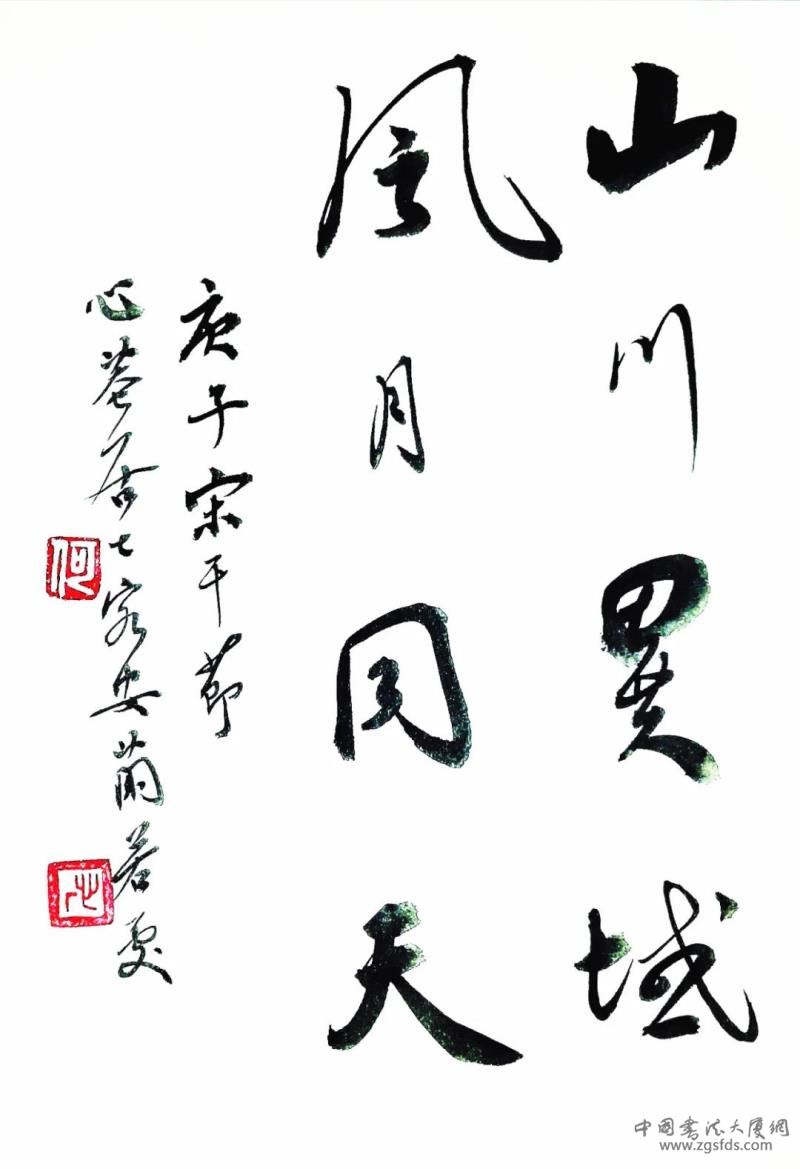 山川異域
風月同天
庚子宋干節
心菴居士客安蘭若處
何
中国書法大廈網
www.zgsfds.com